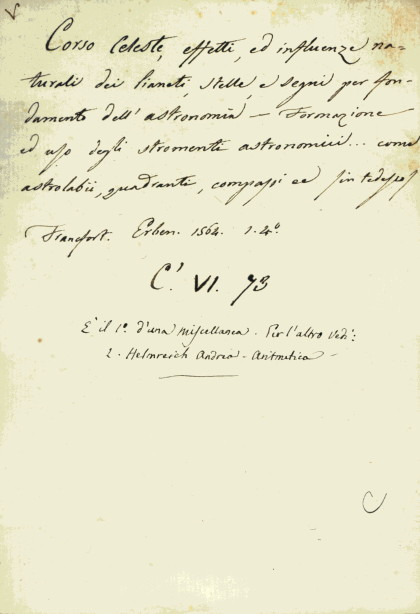 V
Corso Celeste, effetti, ed influenze na=
turali dei Pianeti, stelle, e segni per fon-
damento dell'astronomia — Formazione
ed uso degli stromenti astronomici... come
astrolabii, quadrante, compassi ec (in tedesco)
Francfort. Erben. 1564. 1. 4º
C.' VI. 73
E' il 1º d'una miscellanea. Per l'altro vedi:
2. Helmreich Andrea - Aritmetica -
C